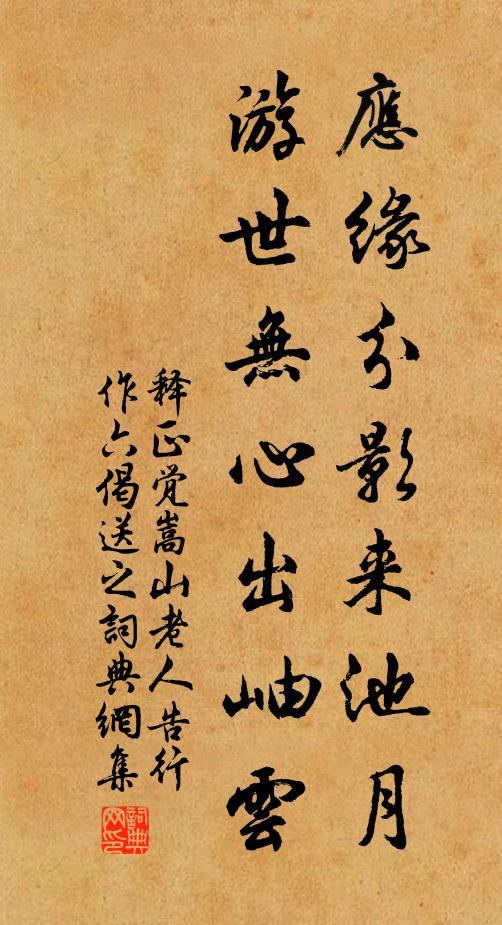 應緣分影來池月
游世無心出岫雲
释正觉嵩山老人告行
作六偈送之詞典網集
詞典网印